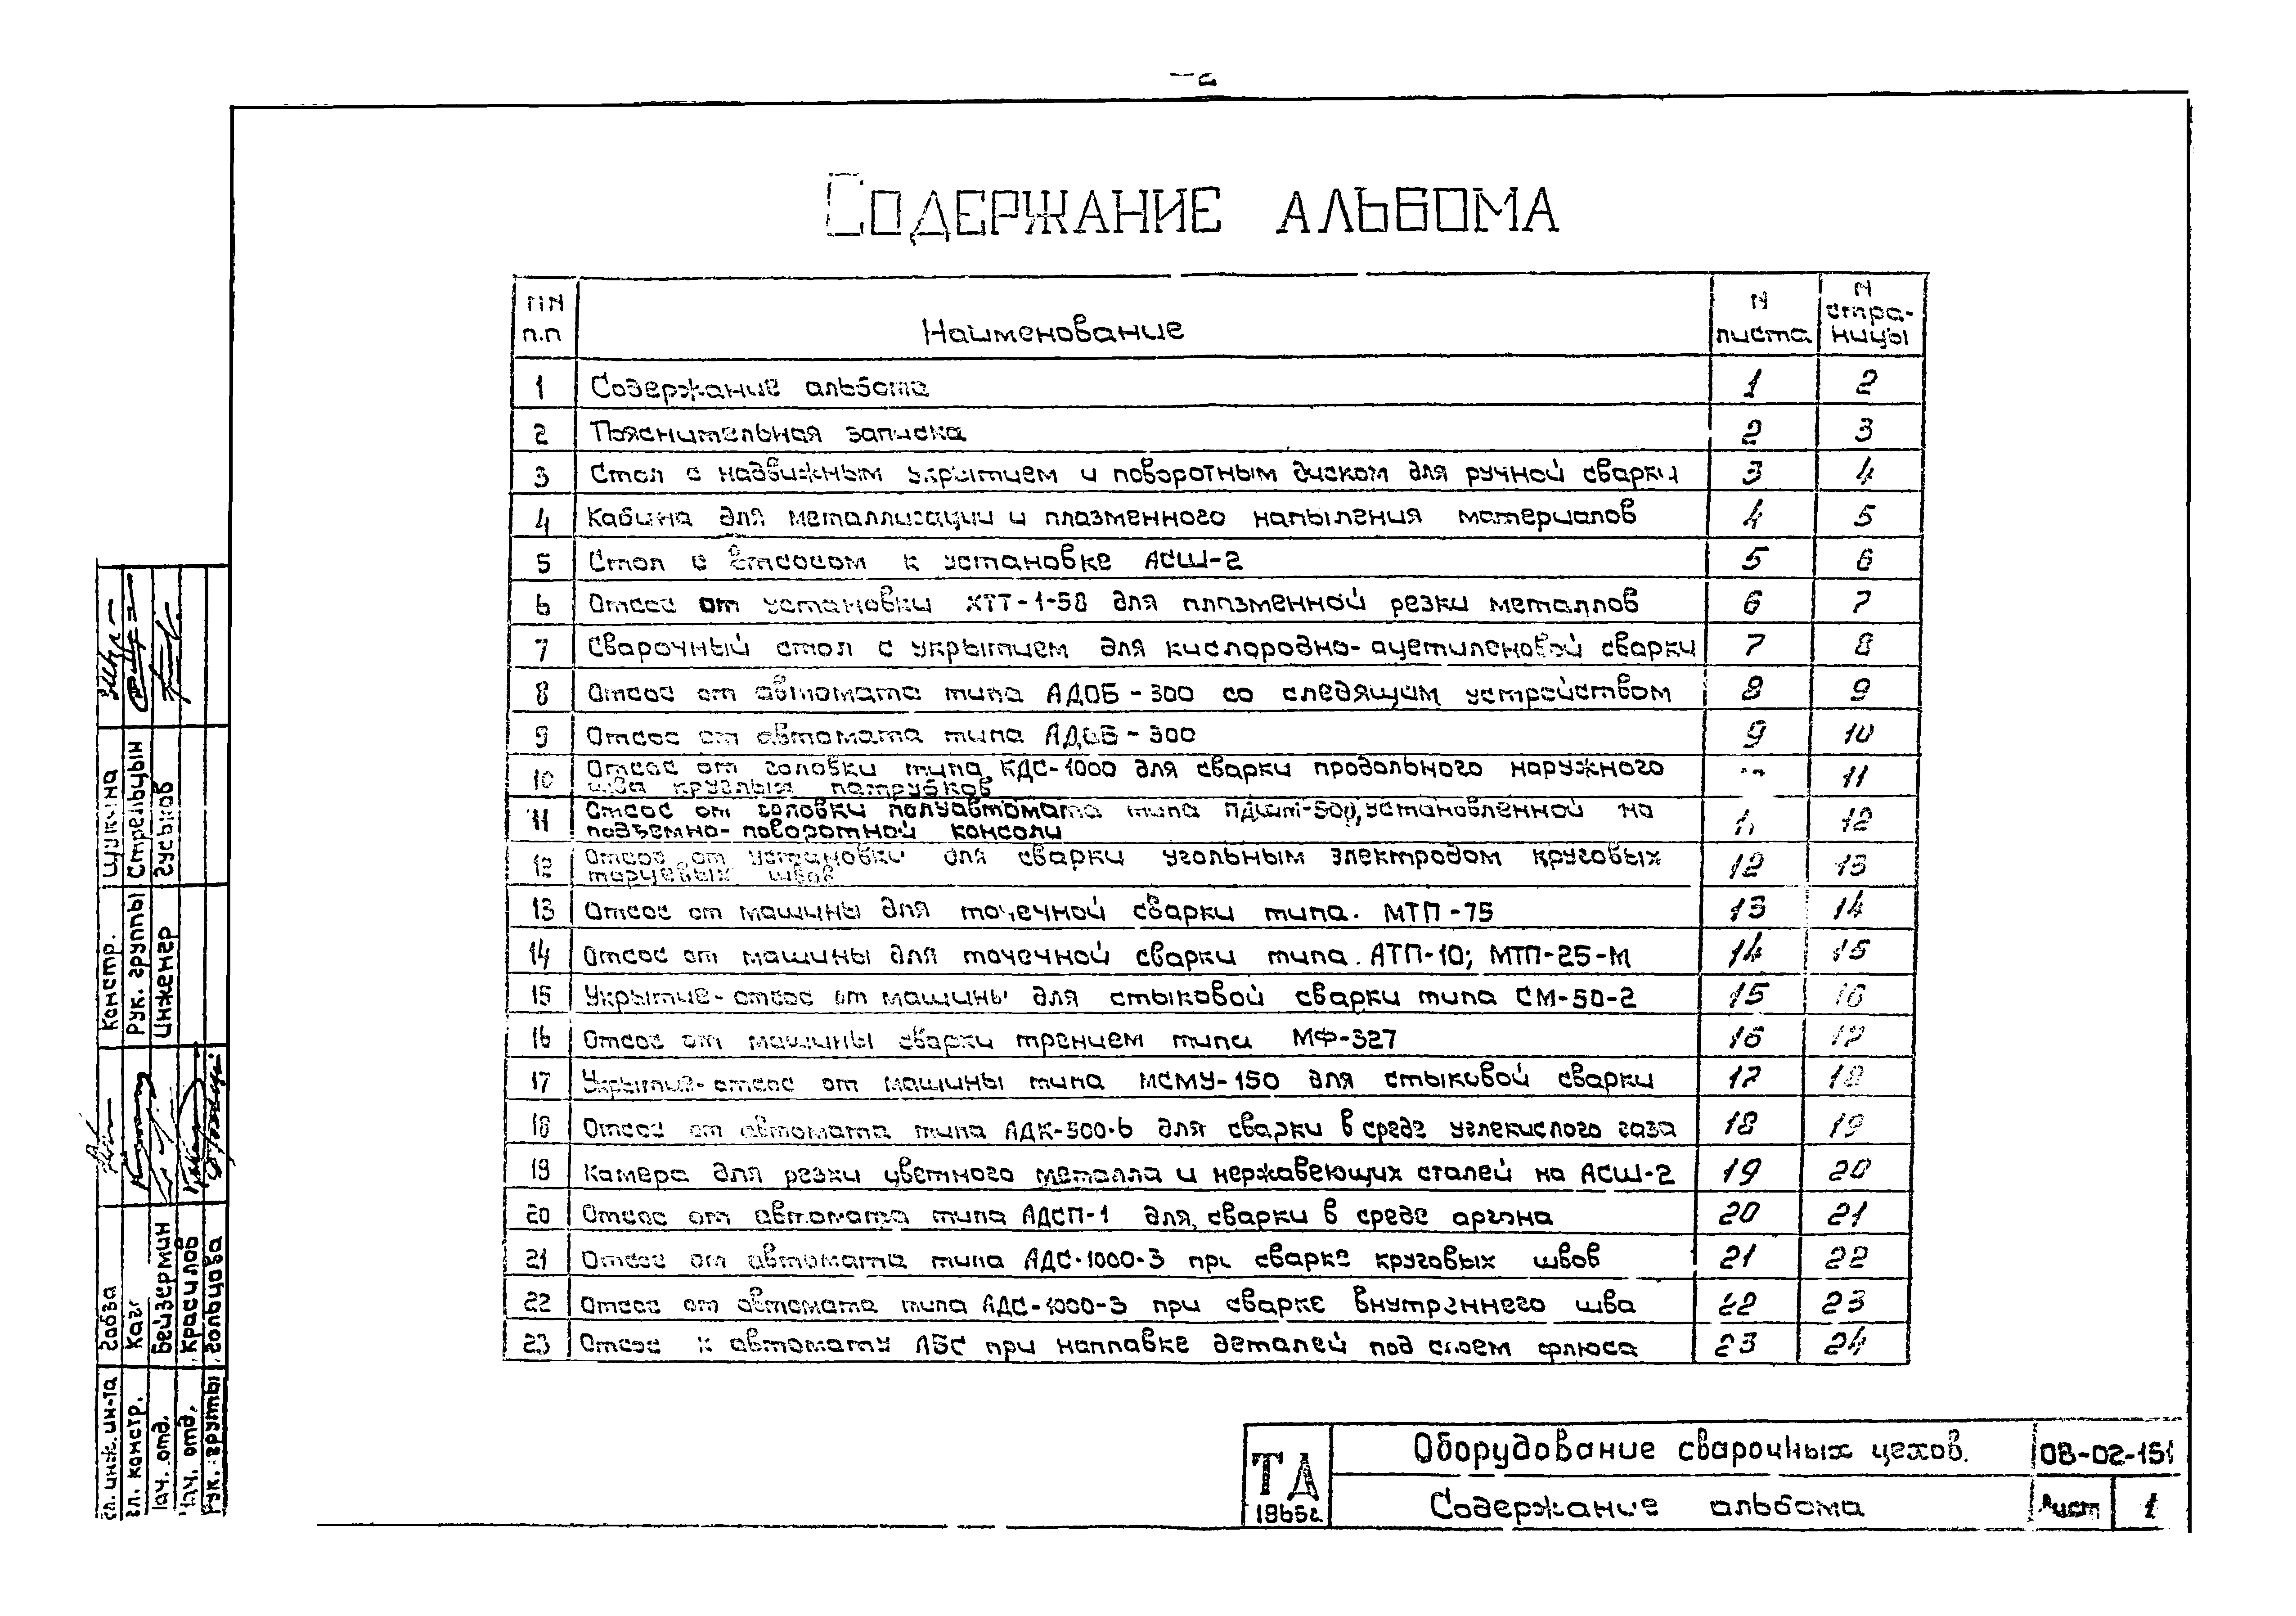 СОДЕРЖАНИЕ АЛЬБОМА
NN п.п Наименование N листа N стра-ницы
1 Содержание альбома 1 2
2 Пояснительная записка 2 3
3 Стол с надвижным укрытием и поворотным диском для ручной сварки 3 4
4 Кабина для металлизации и плазменного напыления материалов 4 5
5 Стол с отсосом к установке АСШ-2 5 6
6 Отсос от установки ХТТ-1-58 для плазменной резки металлов 6 7
7 Сварочный стол с укрытием для кислородно-ацетиленовой сварки 7 8
8 Отсос от автомата типа АДОБ-300 со следящим устройством 8 9
9 Отсос от автомата типа АДОБ-300 9 10
10 Отсос от головки типа КДС-1000 для сварки продольного наружного
шва круглых патрубков 11
11 Отсос от головки полуавтомата типа ПДШМ-500, установленной на
подъемно-поворотной консоли 12
12 Отсос от установки для сварки угольным электродом круговых
торцевых швов 12 13
13 Отсос от машины для точечной сварки типа. МТП-75 13 14
14 Отсос от машины для точечной сварки типа. АТП-10; МТП-25-М 14 15
15 Укрытие-отсос от машины для стыковой сварки типа СМ-50-2 15 16
16 Отсос от машины сварки трением типа МФ-327 16 17
17 Укрытие-отсос от машины типа МСМУ-150 для стыковой сварки 17 18
18 Отсос от автомата типа АДК-500-6 для сварки в среде углекислого газа 18 19
19 Камера для резки цветного металла и нержавеющих сталей на АСШ-2 19 20
20 Отсос от автомата типа АДСП-1 для сварки в среде аргона 20 21
21 Отсос от автомата типа АДС-1000-3 при сварке круговых швов 21 22
22 Отсос от автомата типа АДС-1000-3 при сварке внутреннего шва 22 23
23 Отсос к автомату АБС при наплавке деталей под слоем флюса 23 24
ТА
Оборудование сварочных цехов.
08-02-151
Содержание альбома
Лист 1
Гл. инж. ин-та Габза Констр. Щукина
Гл. констр. Каг Рук. группы Стрельцын
Нач. отд. Бейзермин Инженер Гуськов
Нач. отд. Красилов
Рук. группы Гольцова